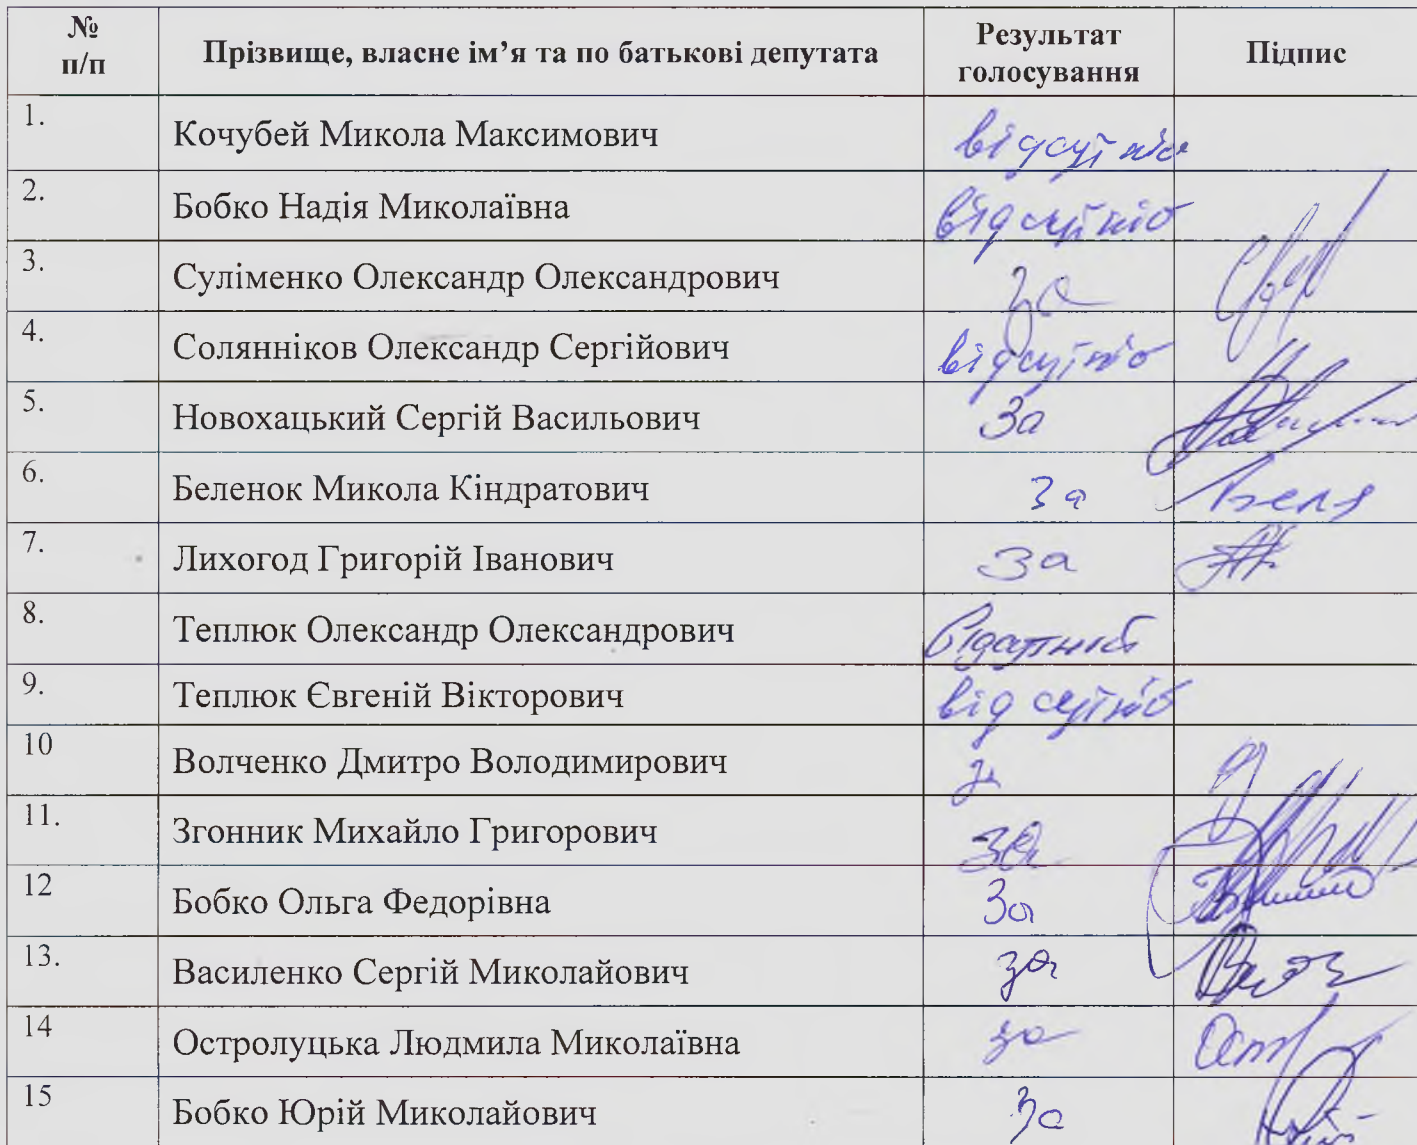 № п/п Прізвище, власне ім’я та по батькові депутата Результат голосування Підпис
1. Кочубей Микола Максимович відсутній
2. Бобко Надія Миколаївна відсутній
3. Суліменко Олександр Олександрович за
4. Солянніков Олександр Сергійович відсутній
5. Новохацький Сергій Васильович За
6. Беленок Микола Кіндратович За
7. Лихогод Григорій Іванович За
8. Теплюк Олександр Олександрович Відсутній
9. Теплюк Євгеній Вікторович відсутній
10 Волченко Дмитро Володимирович за
11. Згонник Михайло Григорович за
12 Бобко Ольга Федорівна За
13. Василенко Сергій Миколайович за
14 Остролуцька Людмила Миколаївна за
15 Бобко Юрій Миколайович За